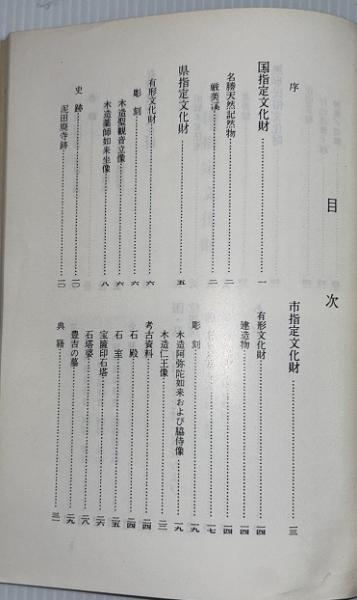 目次
序
国指定文化財……一
名勝天然記念物……二
厳美渓……二
県指定文化財……五
有形文化財……六
彫刻……六
木造聖観音立像……六
木造薬師如来坐像……八
史跡……一〇
泥田廃寺跡……一〇
市指定文化財……一三
有形文化財……一四
建造物……一四
……一四
……一七
彫刻……一九
木造阿弥陀如来および脇侍像……一九
木造仁王像……二三
考古資料……二四
石殿……二四
石室……二五
宝篋印石塔……二六
石塔婆……二八
豊吉の墓……二九
典籍……三一